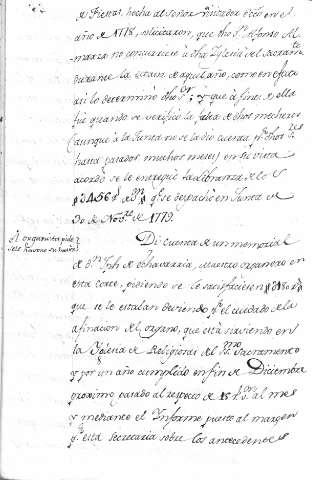 de Fiestas, hecha al Señor Visitador Ecco en el
año de 1778, solicitaron, que dho Sr. Alfonso Al
marza no concurriese a dha Iglesia del Sacramto
durante la octava de aquel año, como en efecto
asi lo determinó dho Sor; y que à fines de ella
fué quando se verificó la falta de dhos mecheros
(aunque à la Junta no se la dio cuenta pr dhos Sres
hasta pasados muchos meses) en su vista
acordó se le entregue la libranza de los
que se despachó en Junta de
30 de Novre de 1779.
El organista pide
Di cuenta de un memorial
de Dn Jph de Echavarria, Maestro organero en
esta corte, pidiendo se le satisfaciesen
que se le estaban debiendo pr el cuidado de la
afinacion del organo, que està sirviendo en
la Iglesia de Religiosas del Smo Sacramento
y por un año cumplido en fin de Diciembre
proximo pasado al respecto de 15 rs von al mes
y mediante el Informe puesto al margen
pr esta secretaria sobre los antecedentes